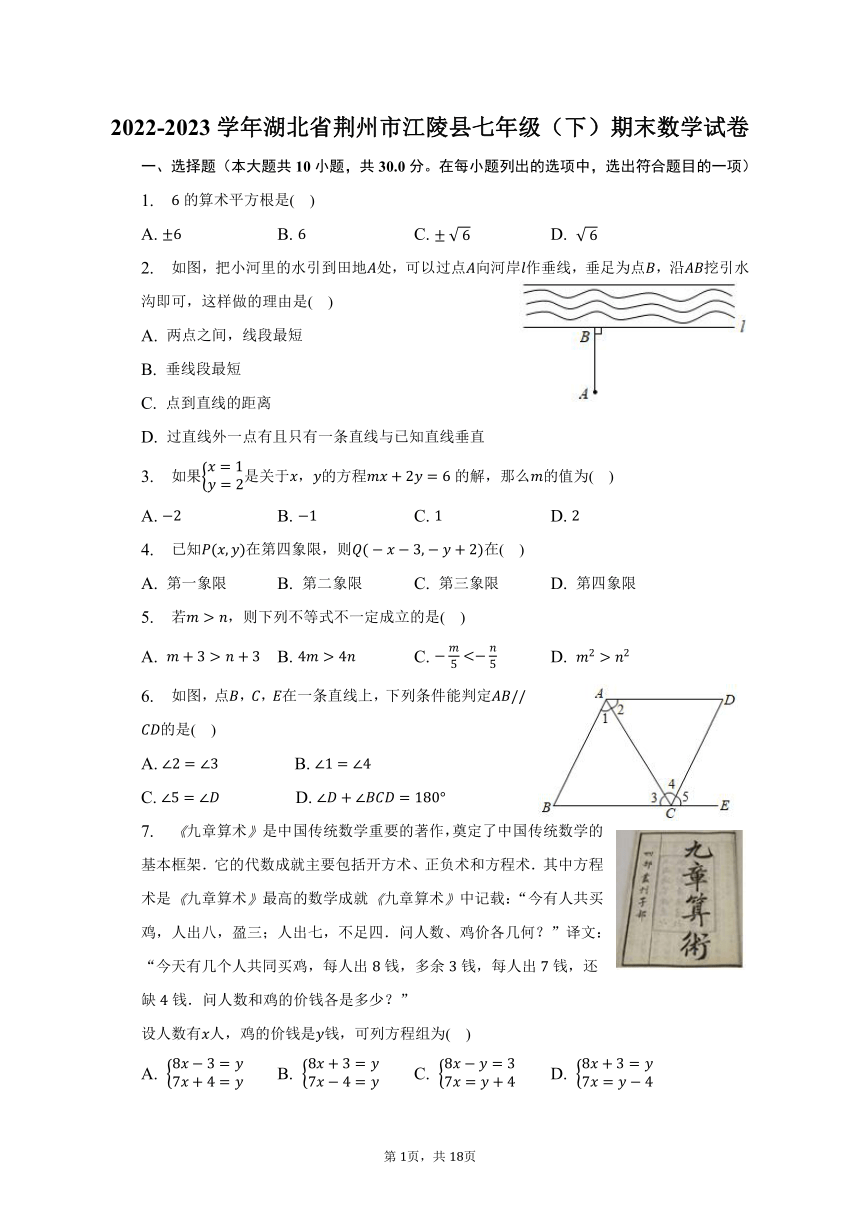 2022-2023 学年湖北省荆州市江陵县七年级（下）期末数学试卷
一、选择题（本大题共 10 小题，共 30.0 分。在每小题列出的选项中，选出符合题目的一项）
1. 6 的算术平方根是( )
A. ±6 B. 6 C. ±√6 D. √6
2. 如图，把小河里的水引到田地A处，可以过点A向河岸l作垂线，垂足为点B，沿AB挖引水
沟即可，这样做的理由是( )
A. 两点之间，线段最短
B. 垂线段最短
C. 点到直线的距离
D. 过直线外一点有且只有一条直线与已知直线垂直
B
l
A
3. 如果{x = 1 y = 2是关于x，y的方程mx + 2y = 6 的解，那么m的值为( )
A. −2 B. −1 C. 1 D. 2
4. 已知P(x, y)在第四象限，则Q( − x − 3, − y + 2)在( )
A. 第一象限 B. 第二象限 C. 第三象限 D. 第四象限
5. 若m > n，则下列不等式不一定成立的是( )
A. m + 3 > n + 3 B. 4m > 4n C. −m/5 < −n/5 D. m² > n²
6. 如图，点B，C，E在一条直线上，下列条件能判定AB//
CD的是( )
A. ∠2 = ∠3 B. ∠1 = ∠4
C. ∠5 = ∠D D. ∠D + ∠BCD = 180°
A D
1 2
4
B 3 5 E
C
7. 《九章算术》是中国传统数学重要的著作，奠定了中国传统数学的
基本框架．它的代数成就主要包括开方术、正负术和方程术．其中方程
术是《九章算术》最高的数学成就《九章算术》中记载：“今有人共买
鸡，人出八，盈三；人出七，不足四．问人数、鸡价各几何？”译文：
“今天有几个人共同买鸡，每人出 8 钱，多余 3 钱，每人出 7 钱，还
缺 4 钱．问人数和鸡的价钱各是多少？”
九章算術
设人数有x人，鸡的价钱是y钱，可列方程组为( )
A. {8x − 3 = y 7x + 4 = y B. {8x + 3 = y 7x − 4 = y C. {8x − y = 3 7x = y + 4 D. {8x + 3 = y 7x = y − 4
第 1页，共 18页